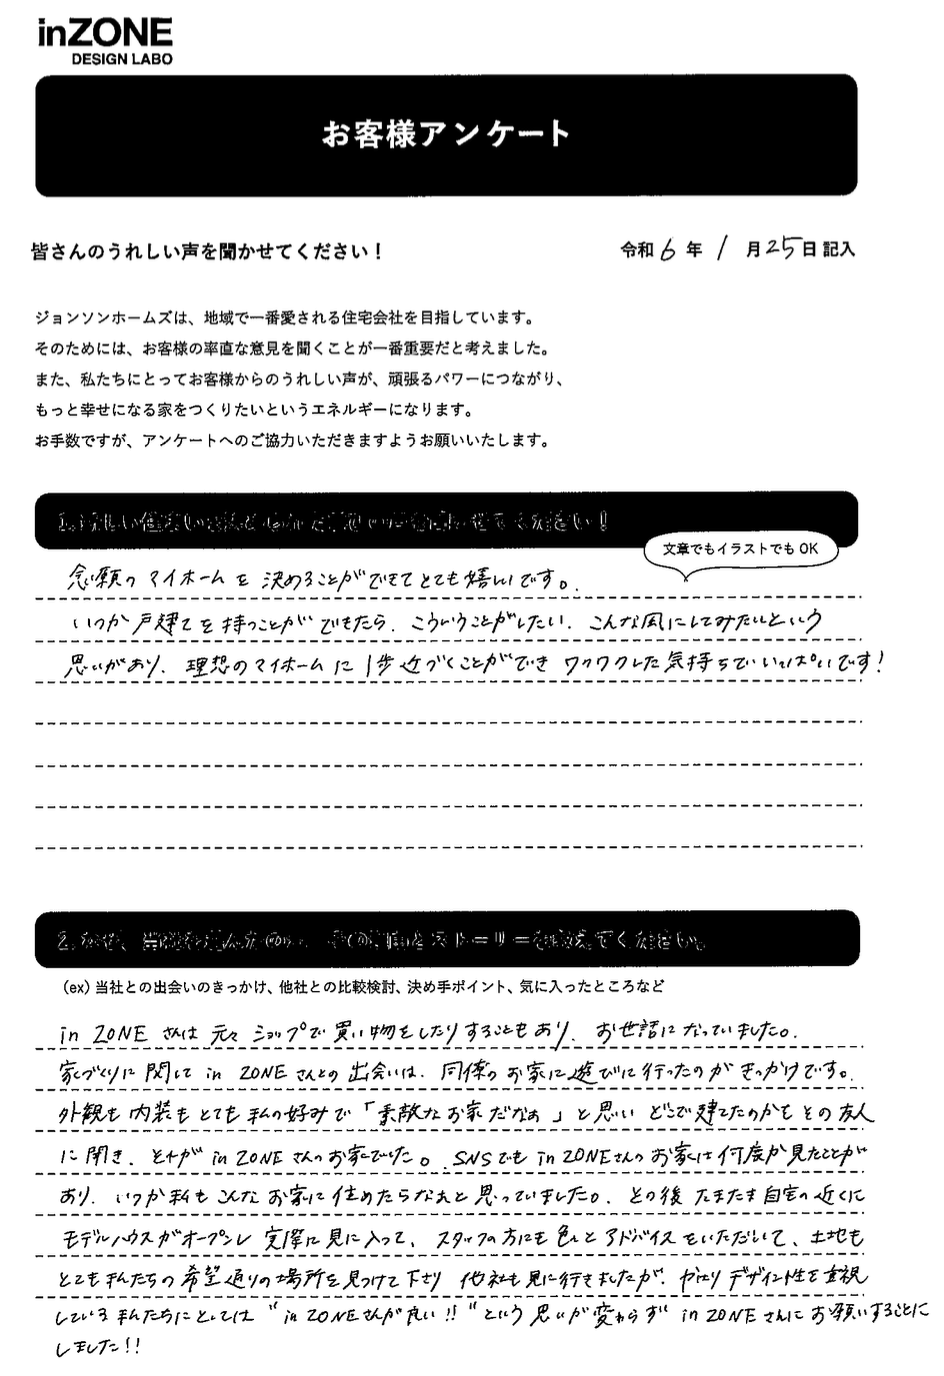 inZONE
DESIGN LABO
お客様アンケート
皆さんのうれしい声を聞かせてください！
令和6年1月25日記入
ジョンソンホームズは、地域で一番愛される住宅会社を目指しています。
そのためには、お客様の率直な意見を聞くことが一番重要だと考えました。
また、私たちにとってお客様からのうれしい声が、頑張るパワーにつながり、
もっと幸せになる家をつくりたいというエネルギーになります。
お手数ですが、アンケートへのご協力いただきますようお願いいたします。
文章でもイラストでもOK
念願のマイホームを決めることができてとても嬉しいです。
いつか戸建てを持つことができたら、こういうことがしたい、こんな風にしてみたいという
思いがあり、理想のマイホームに1歩近づくことができワクワクした気持ちでいっぱいです!
(ex)当社との出会いのきっかけ、他社との比較検討、決め手ポイント、気に入ったところなど
in ZONEさんは元々ショップで買い物をしたりすることもあり、お世話になっていました。
家づくりに関してin ZONEさんとの出会いは、同僚のお家に遊びに行ったのがきっかけです。
外観も内装もとても私の好みで「素敵なお家だなぁ」と思いどこで建てたのかをその友人
に聞き、それがin ZONEさんのお家でした。SNSでもin ZONEさんのお家は何度か見たことが
あり、いつか私もこんなお家に住めたらなぁと思っていました。その後たまたま自宅の近くに
モデルハウスがオープンし実際に見に入って、スタッフの方にも色々とアドバイスをいただいて、土地も
とても私たちの希望通りの場所を見つけて下さり他社も見に行きましたが、やはりデザイン性を重視
している私たちにとっては"in ZONEさんが良い!!"という思いが変わらずin ZONEさんにお願いすることに
しました!!